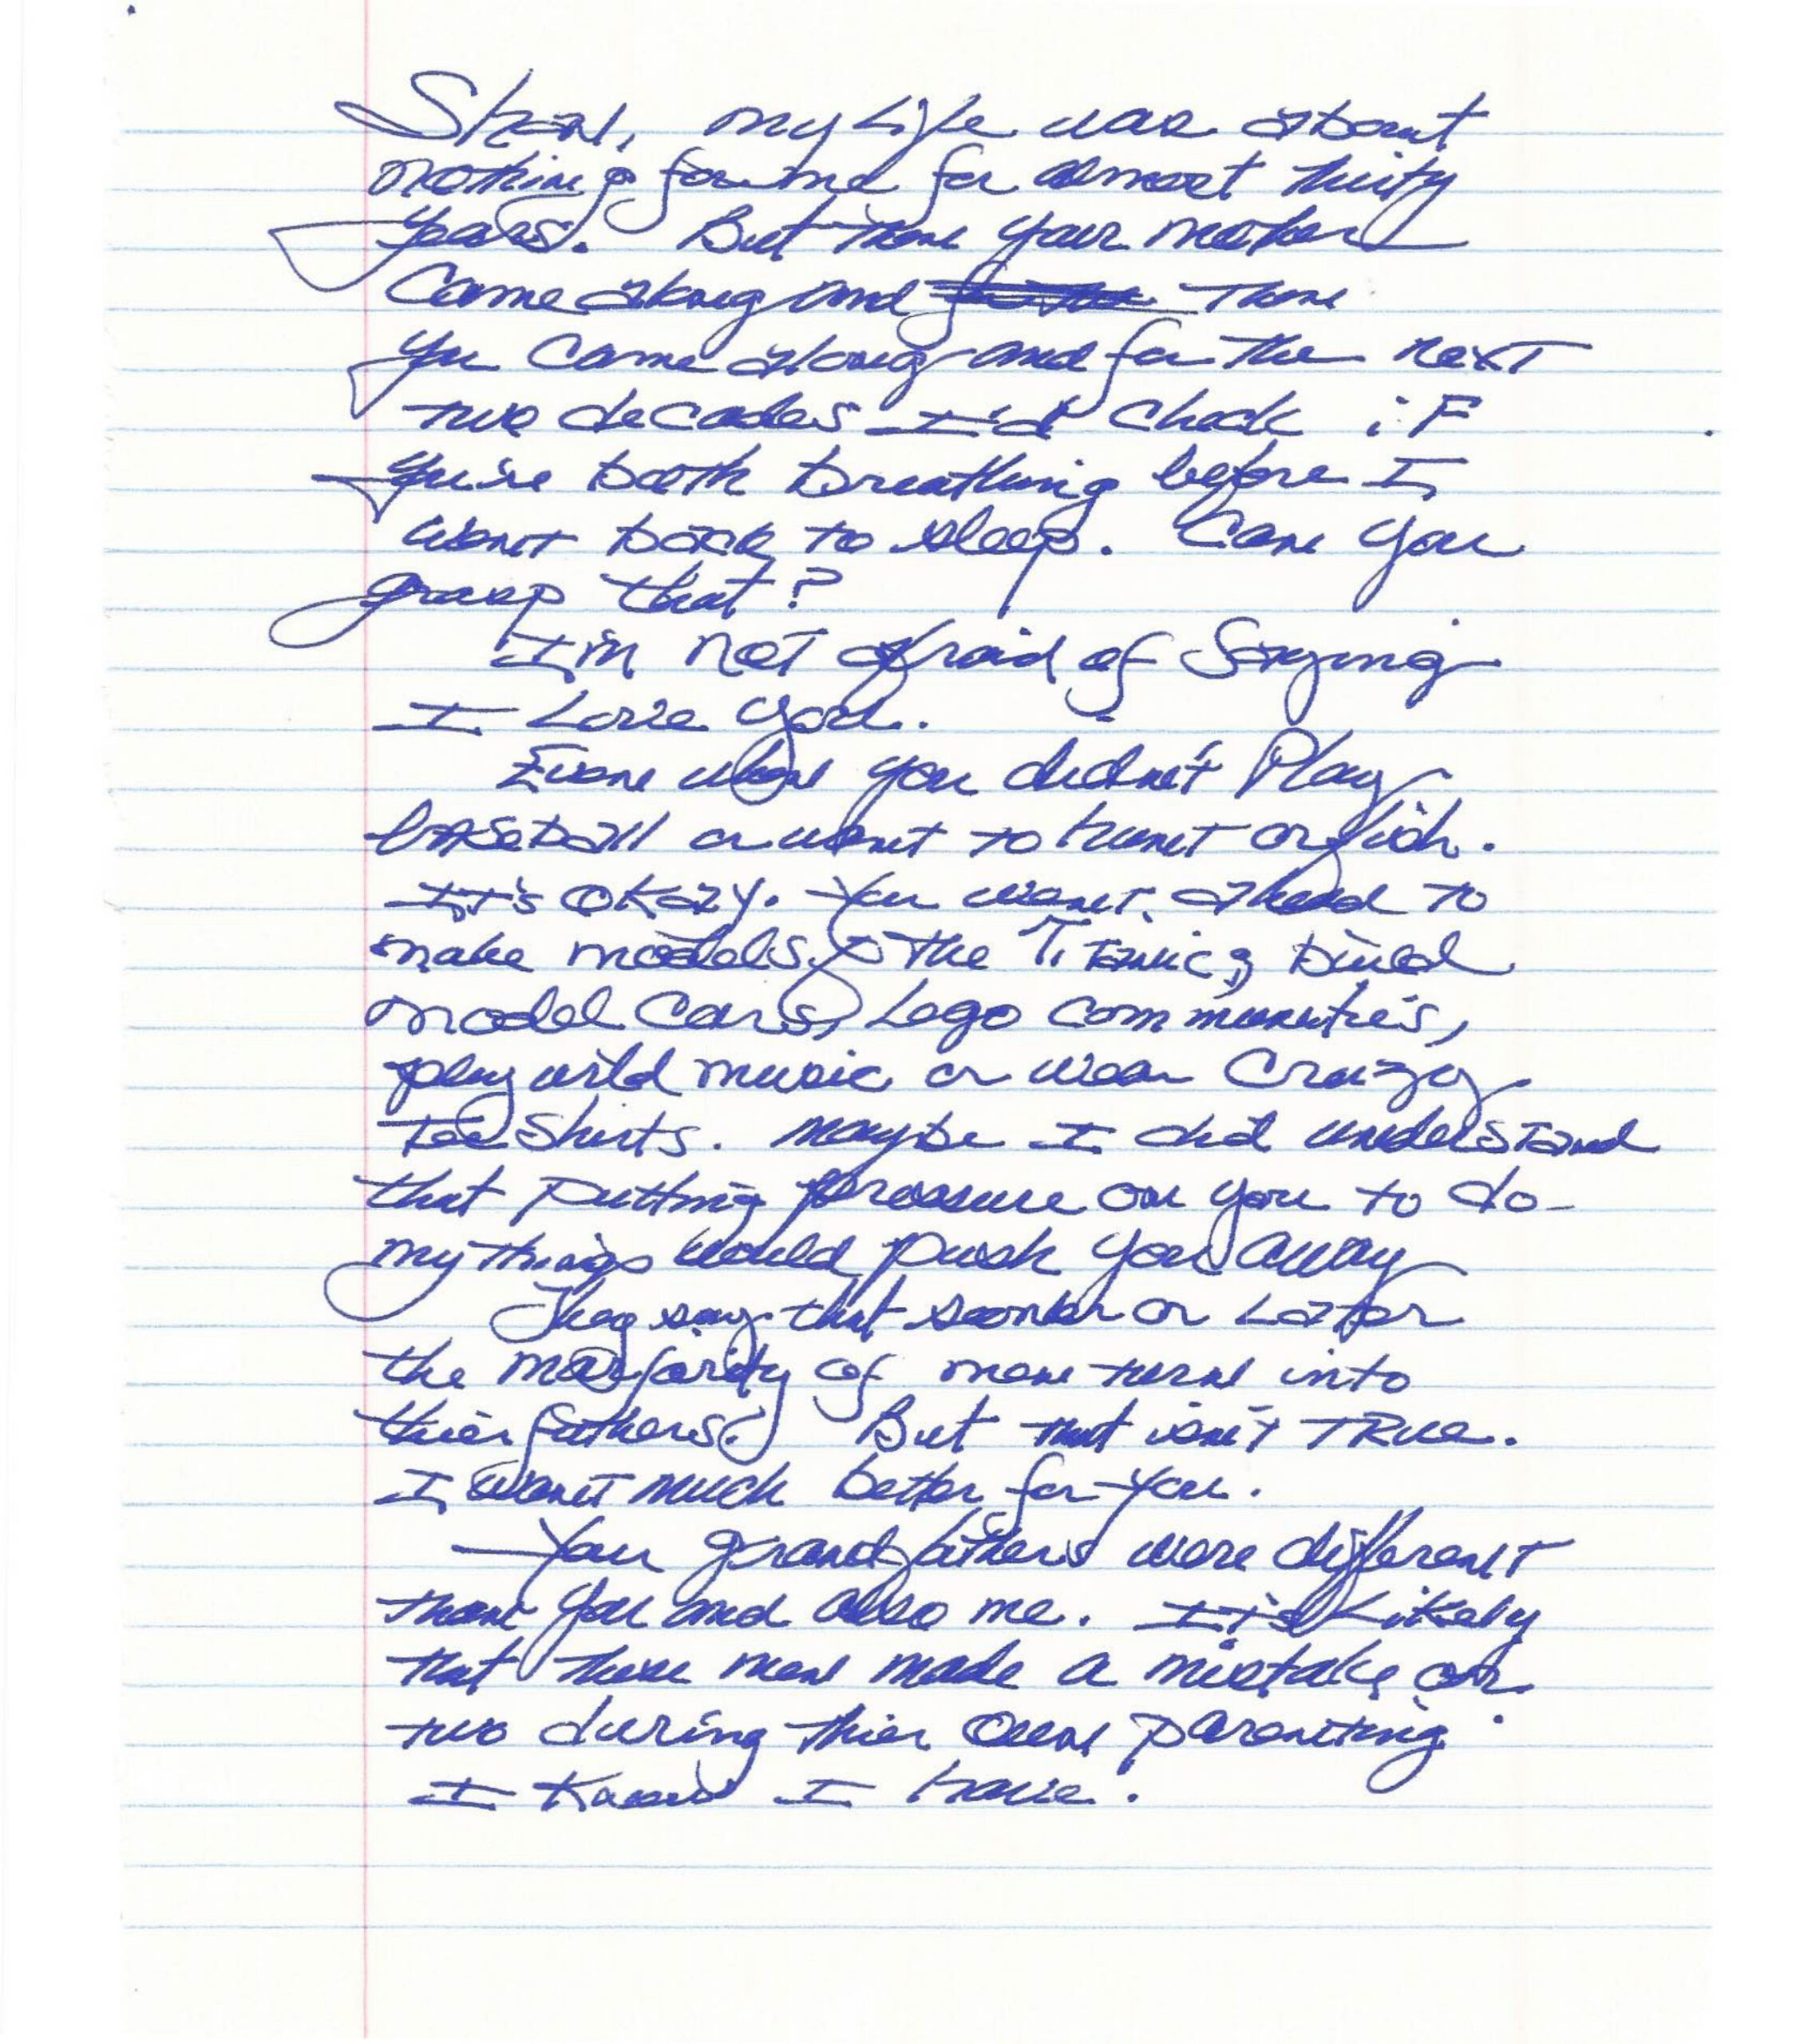 my Life was about
nothing for me for almost thirty
years. But then your mother
came along and then
you came along and for the next
two decades I'd check iF
you're both breathing before I
went back to sleep. Can you
grasp that?
I'm not afraid of Saying
I Love you.
Even when you didn't Play
baseball or want to hunt or fish.
It's okay. You went ahead to
make models of the Titanic, build
model cars, Lego communities,
play wild music or wear Crazy
Tee Shirts. maybe I did understand
that putting pressure on you to do
my things would push you away
They say that sooner or Later
the majority of men turn into
thier fathers. But that isn't TRue.
I want much better for you.
Your grandfathers were different
than you and also me. It's Likely
that these men made a mistake or
two during thier Own parenting.
I Know I have.